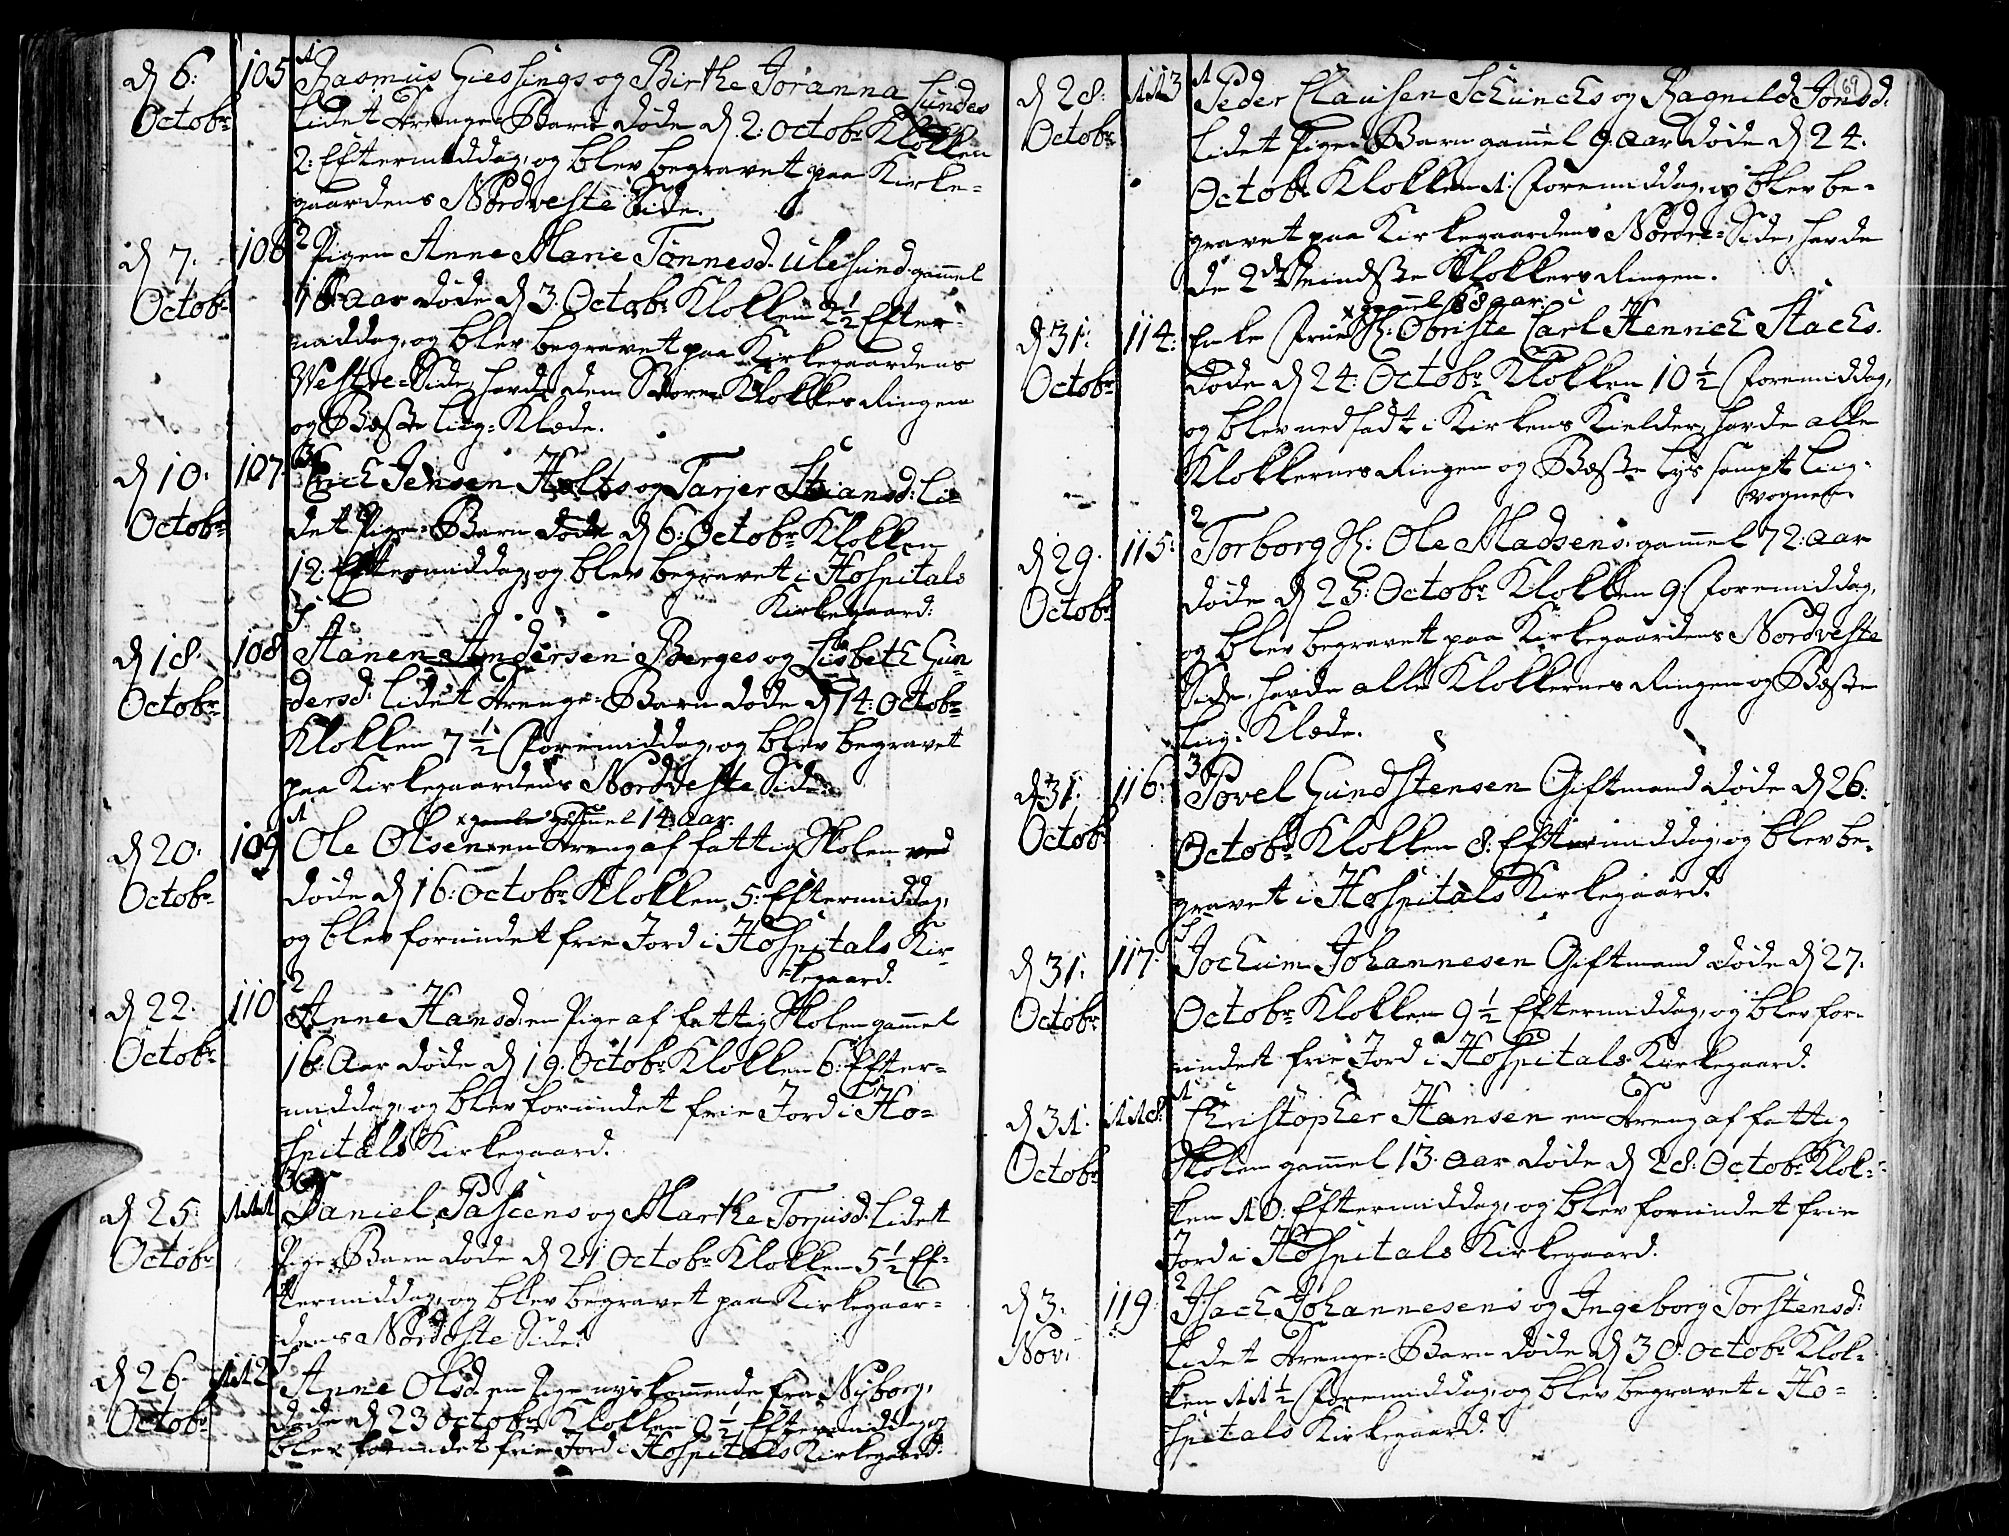 d 6: 105 1 Rasmus Giessings og Birthe Joranna Lundes
Octobr lidet Drenge-Barn døde d 2: Octobr Klokken
2: Eftermiddag, og blev begravet paa Kirke=
gaardens Nordveste Side.
d 7. 106 2 Pigen Anne Marie Tønnesd. Ulesund gammel
Octobr 16: aar døde d 3. Octobr Klokken 2½ Efter=
middag, og blev begravet paa Kirkegaardens
Vestre=Side, havde den Store Klokkes Ringen
og Beste Liig=Klæde.
d 10. 107 3 Erich Jensen Holtes og Tarjer Stiansd: Li=
Octobr det Pige=Barn døde d 6: Octobr Klokken
12: Eftermiddag, og blev begravet i Hospitals
Kirkegaard:
d 18. 108 4 Hanen Andersen Berges og Lisbeth Gun
Octobr dersd: lidet Drenge=Barn døde d 14: Octobr
Klokken 7½ Formiddag, og blev begravet
paa Kirkegaardens Nordveste Side.
x gammel 14 aar.
d 20. 109 1 Ole Olsen en Dreng af fattig Skolen
Octobr døde d 16: Octobr Klokken 5: Eftermiddag,
og blev forundet frie Jord i Hospitals Kir=
=kegaard.
d 22. 110 2 Anne Hansd: en Pige af fattig Skolen gammel
Octobr 16: Aar døde d 19: Octobr Klokken 6: Efter=
middag, og blev forundet frie Jord i Ho=
spitals Kirkegaard.
d 25. 111 3 Daniel Pascens og Marthe Torjusd: lidet
Octobr Pige Barn døde d 21 Octobr Klokken 5½ Ef=
termiddag, og blev begravet paa Kirkegaar=
dens Nordeste Side.
d 26. 112 4 Anne Olsd. en Pige nyskommende fra Nyborg,
Octobr døde d 23 Octobr Klokken 9½ Eftermiddag og
blev forundet frie Jord i Hospitals Kirkegaard.
69
d 28. 113 1 Peder Clausen Schuncks og Ragnild Jonsd:
Octobr lidet Pige Barn gammel 9: aar døde d 24.
Octobr Klokken 1: Foremiddag, og blev be=
gravet paa Kirkegaardens Nordre=Side, havde
de 2de Mindste Klokkers Ringen.
x gammel 68 aar:
d 31. 114: Enke Frue Sl: Obriste Carl Henrich Stachs.
Octobr Døde d 24: Octobr Klokken 10½ Foremiddag,
og blev nedsadt i Kirkens Kielder, havde alle
Klokkernes Ringen og Beste lys sampt Liig=
vognen
d 29. 115: 2 Torborg Sl: Ole Madsens. gammel 72: aar
Octobr døde d 25: Octobr Klokken 9: Foremiddag,
og blev begravet paa Kirkegaardens Nordveste
Side, havde alle Klokkernes Ringen og Beste
Liig=Klæde.
d 31. 116: 3 Povel Gundstensen Giftmand døde d 26:
Octobr Octobr Klokken 8: Eftermiddag, og blev be=
gravet i Hospitals Kirkegaard.
d 31. 117: 4 Jochum Johannesen Giftmand døde d 27:
Octobr Octobr Klokken 9½ Eftermiddag, og blev for=
undet frie Jord i Hospitals Kirkegaard.
d 31. 118: 1 Christopher Hansen en Dreng af fattig
Octobr Skolen gammel 13. aar døde d 28: Octobr Klok=
ken 10: Eftermiddag, og blev forundet frie
Jord i Hospitals Kirkegaard.
d 3. 119. 2 Isach Johannesens og Ingeborg Torstensd:
Nov. lidet Drenge=Barn døde d 30. Octobr Klok=
ken 11½ Foremiddag, og blev begravet i Ho=
spitals Kirkegaard.